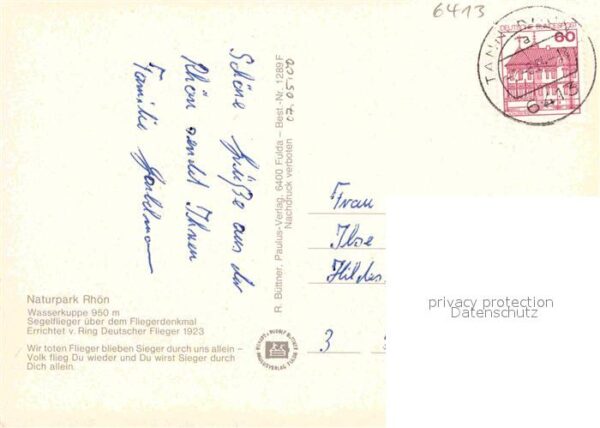 6413
Schöne Grüße aus der
Rhön sendet Ihnen
Familie
Naturpark Rhön
Wasserkuppe 950 m
Segelflieger über dem Fliegerdenkmal
Errichtet v. Ring Deutscher Flieger 1923
Wir toten Flieger blieben Sieger durch uns allein –
Volk flieg Du wieder und Du wirst Sieger durch
Dich allein.
R. Büttner, Paulus-Verlag, 6400 Fulda – Best.-Nr. 1289 F
Nachdruck verboten
07.05.02
60
DEUTSCHE BUNDESPOST
6413
Frau
Ilse
Hildes
3
privacy protection
Datenschutz